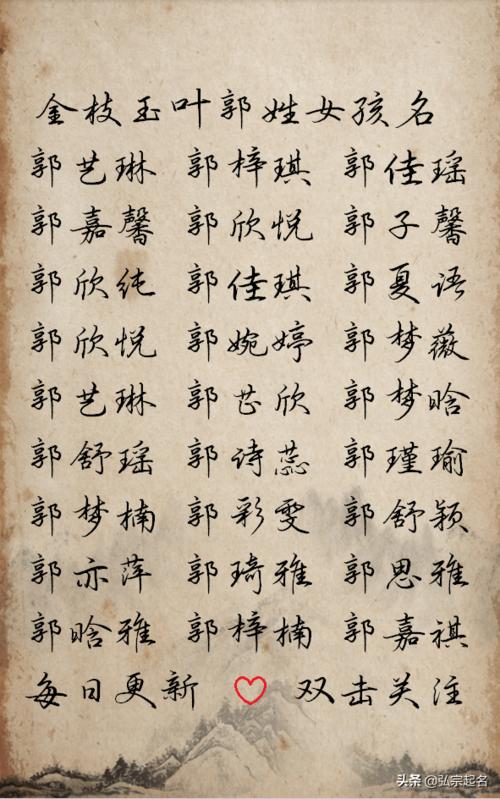 金枝玉叶郭姓女孩名
郭艺琳 郭梓琪 郭佳瑶
郭嘉馨 郭欣悦 郭子馨
郭欣纯 郭佳琪 郭夏语
郭欣悦 郭婉婷 郭梦薇
郭艺琳 郭芷欣 郭梦晗
郭舒瑶 郭诗蕊 郭瑾瑜
郭梦楠 郭彩雯 郭舒颖
郭亦萍 郭琦雅 郭思雅
郭晗雅 郭梓楠 郭嘉祺
每日更新 ♡ 双击关注
头条 @弘宗起名